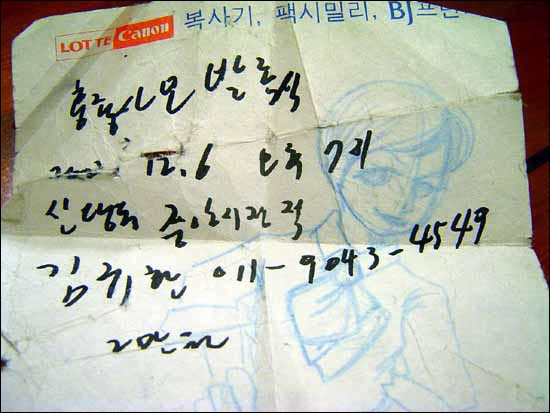 LOTTE Canon 복사기, 팩시밀리, BJ프린
홍콩사모 발족식
12.6 오후 7시
신당동
김휘현 011-9043-4549
2만원